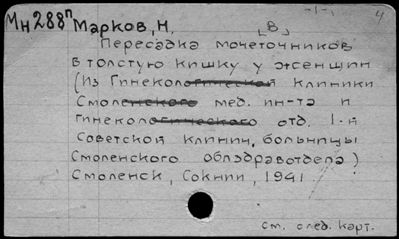 Мн288п Марков, Н. [В]
4
Пересадка мочеточников
в толстую кишку у женщин
(Из Гинекологической клиники
Смоленского мед. ин-та и
гинекологического отд. 1-й
Советской клинич. больницы
Смоленского облздравотдела)
Смоленск, Сокнии, 1941
см. след. карт.